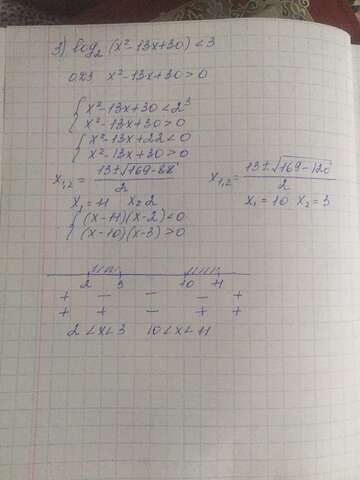 3) log₂ (x²-13x+30) < 3
ОДЗ x²-13x+30>0
{ x²-13x+30<2³
x²-13x+30>0
{ x²-13x+22<0
x²-13x+30>0
x₁,₂ = (13±√(169-88))/2 x₁,₂ = (13±√(169-120))/2
x₁=11 x₂=2 x₁=10 x₂=3
{ (x-11)(x-2)<0
(x-10)(x-3)>0
2 3 10 11
+ - - - +
+ + - + +
2<x<3 10<x<11